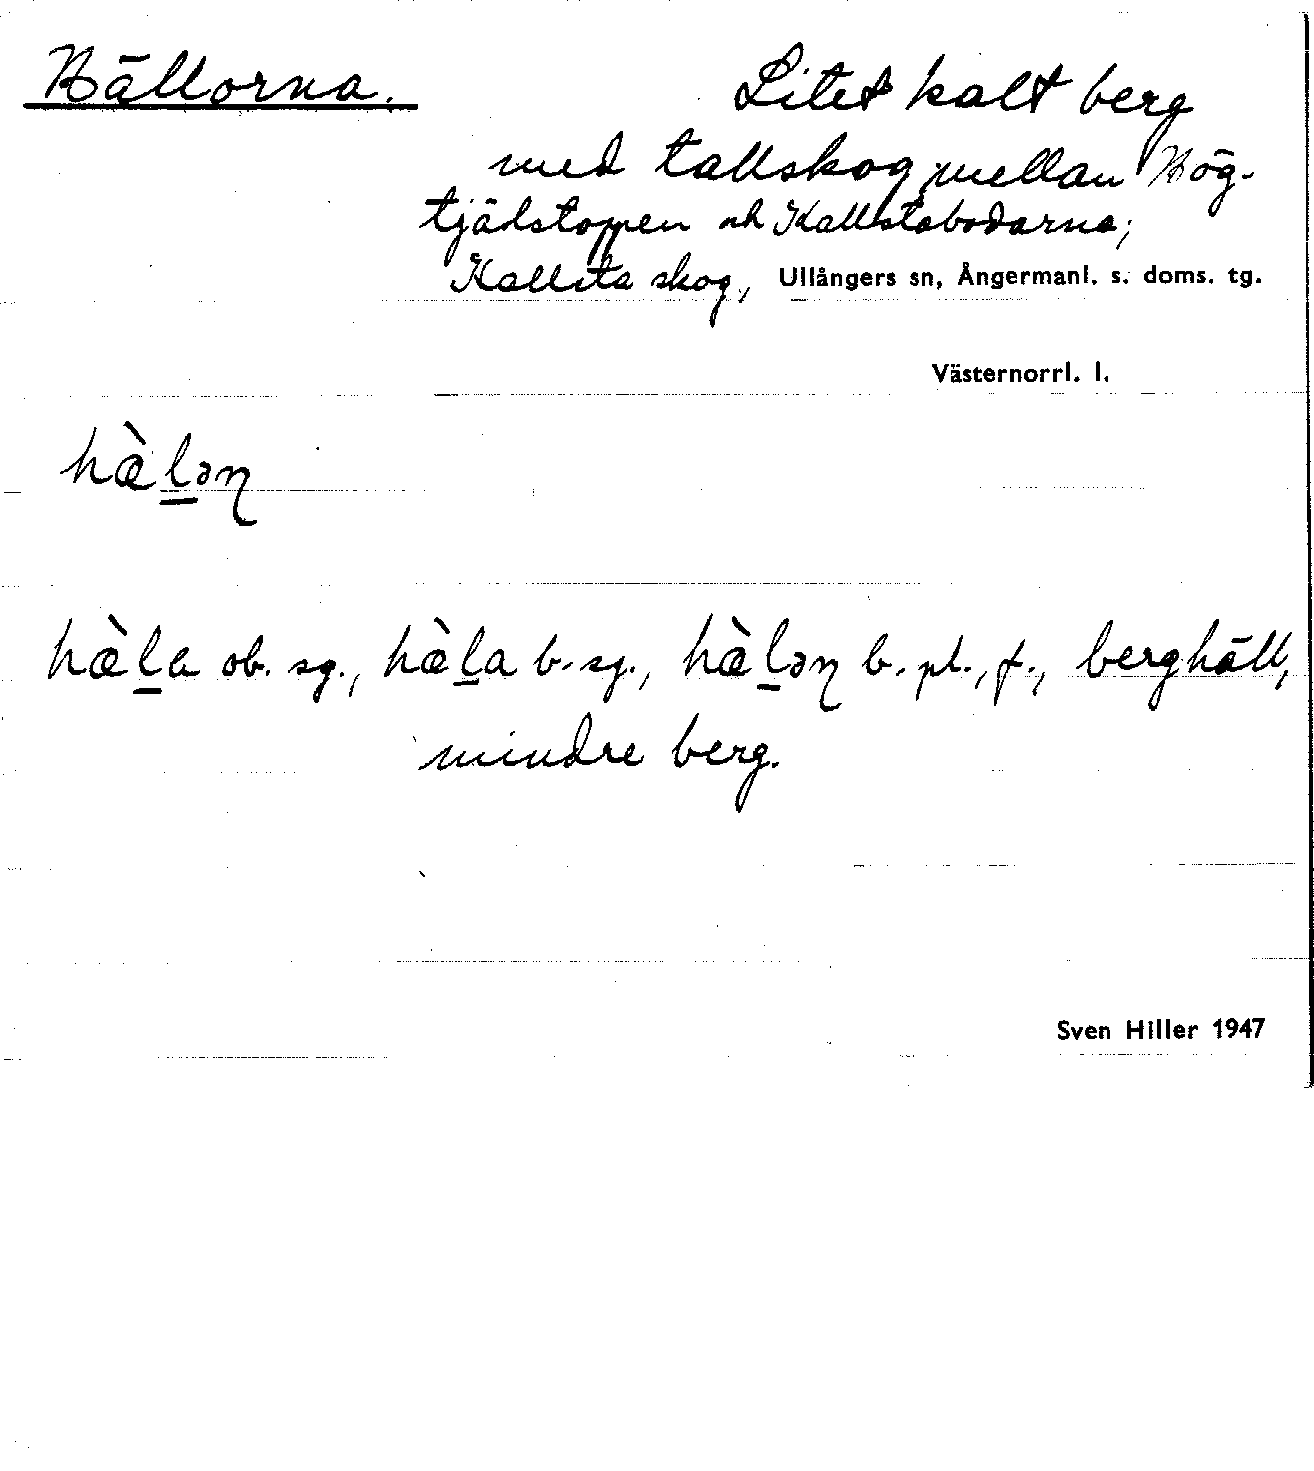 Hällorna.
Litet kalt berg
med tallskog mellan Hög-
tjälstoppen och Kallstabodarna;
Kallsta skog, Ullångers sn, Ångermanl. s. doms. tg.
Västernorrl. l.
hæ̀l̲əɳ
hæ̀l̲a ob. sg., hæ̀l̲a b. sg., hæ̀l̲əɳ b. pl., f., berghäll,
mindre berg.
Sven Hiller 1947